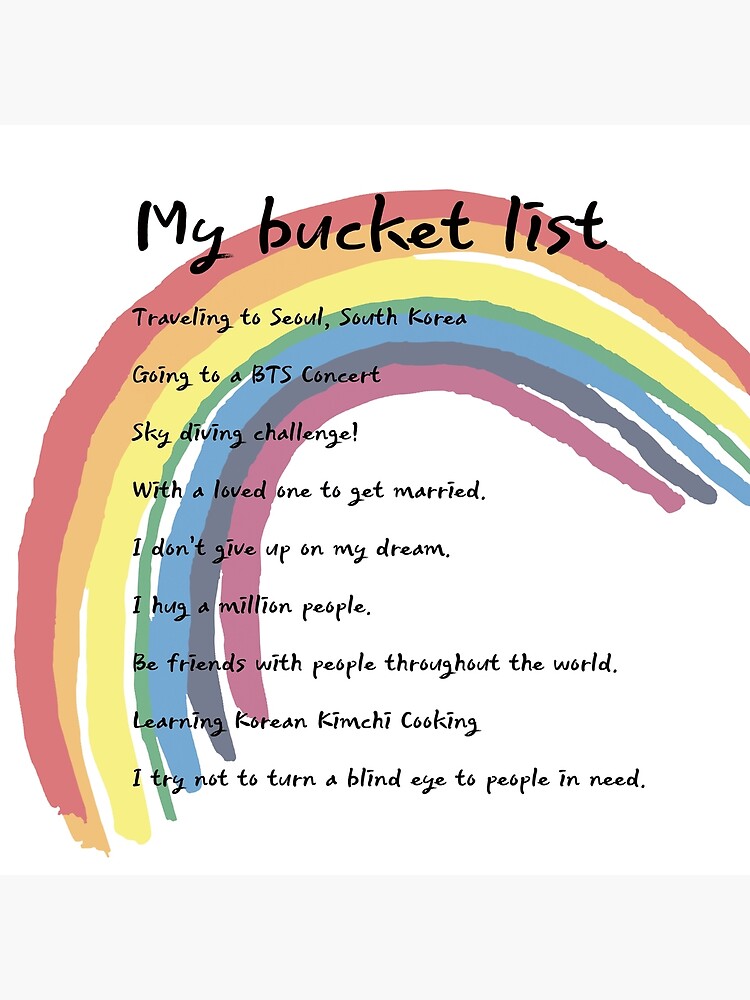 My bucket list
Traveling to Seoul, South Korea
Going to a BTS Concert
Sky diving challenge!
With a loved one to get married.
I don't give up on my dream.
I hug a million people.
Be friends with people throughout the world.
Learning Korean Kimchi Cooking
I try not to turn a blind eye to people in need.